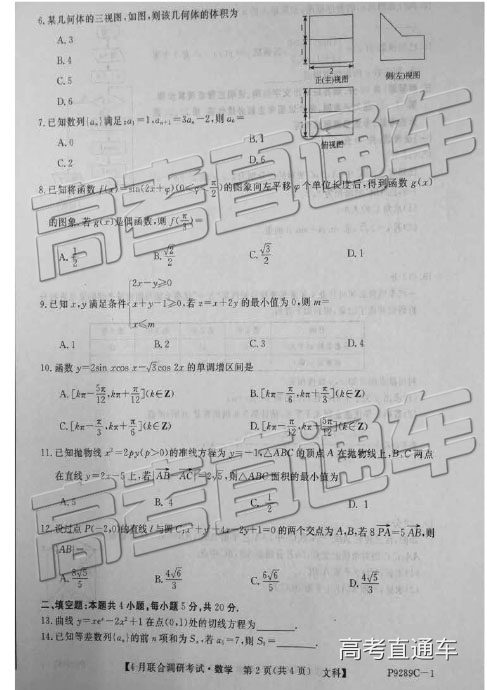 6.某几何体的三视图,如图,则该几何体的体积为
A.3
B.4
C.5
D.6
1
1
2
正(主)视图
侧(左)视图
俯视图
7.已知数列{aₙ}满足:a₁=1,aₙ₊₁=3aₙ-2,则a₆=
A.0
B.1
C.2
D.6
8.已知将函数f(x)=sin(2x+φ)(0≤φ≤π/2)的图象向左平移φ个单位长度后,得到函数g(x)
的图象.若g(x)是偶函数,则f(π/3)=
A.1/2
B.√2/2
C.√3/2
D.1
2x-y≥0
9.已知x,y满足条件{x+y-1≥0,若z=x+2y的最小值为0,则m=
x≤m
A.1
B.2
C.3
D.4
10.函数y=2sin xcos x-√3cos 2x的单调增区间是
A.[kπ-5π/12,kπ+π/12](k∈Z)
B.[kπ-π/6,kπ+π/3](k∈Z)
C.[kπ-π/3,kπ+π/6](k∈Z)
D.[kπ-π/12,kπ+5π/12](k∈Z)
11.已知抛物线x²=2py(p>0)的准线方程为y=-1,△ABC的顶点A在抛物线上,B,C两点
在直线y=2x-5上,若|AB-AC|=2√5,则△ABC面积的最小值为
A.5
B.4
C.1/2
D.1
12.设过点P(-2,0)的直线l与圆C:x²+y²+4x-2y+1=0的两个交点为A,B,若8PA=5AB,则
|AB|=
A.8√5/5
B.4√6/3
C.6√6/5
D.4√5/3
二、填空题:本题共4小题,每小题5分,共20分.
13.曲线y=xeˣ-2x²+1在点(0,1)处的切线方程为
14.已知等差数列{aₙ}的前n项和为Sₙ,若a₁=7,则S₅=
【4月联合调研考试·数学 第2页(共4页) 文科】
P9289C-1
高考直通车
高考直通车
高考直通车